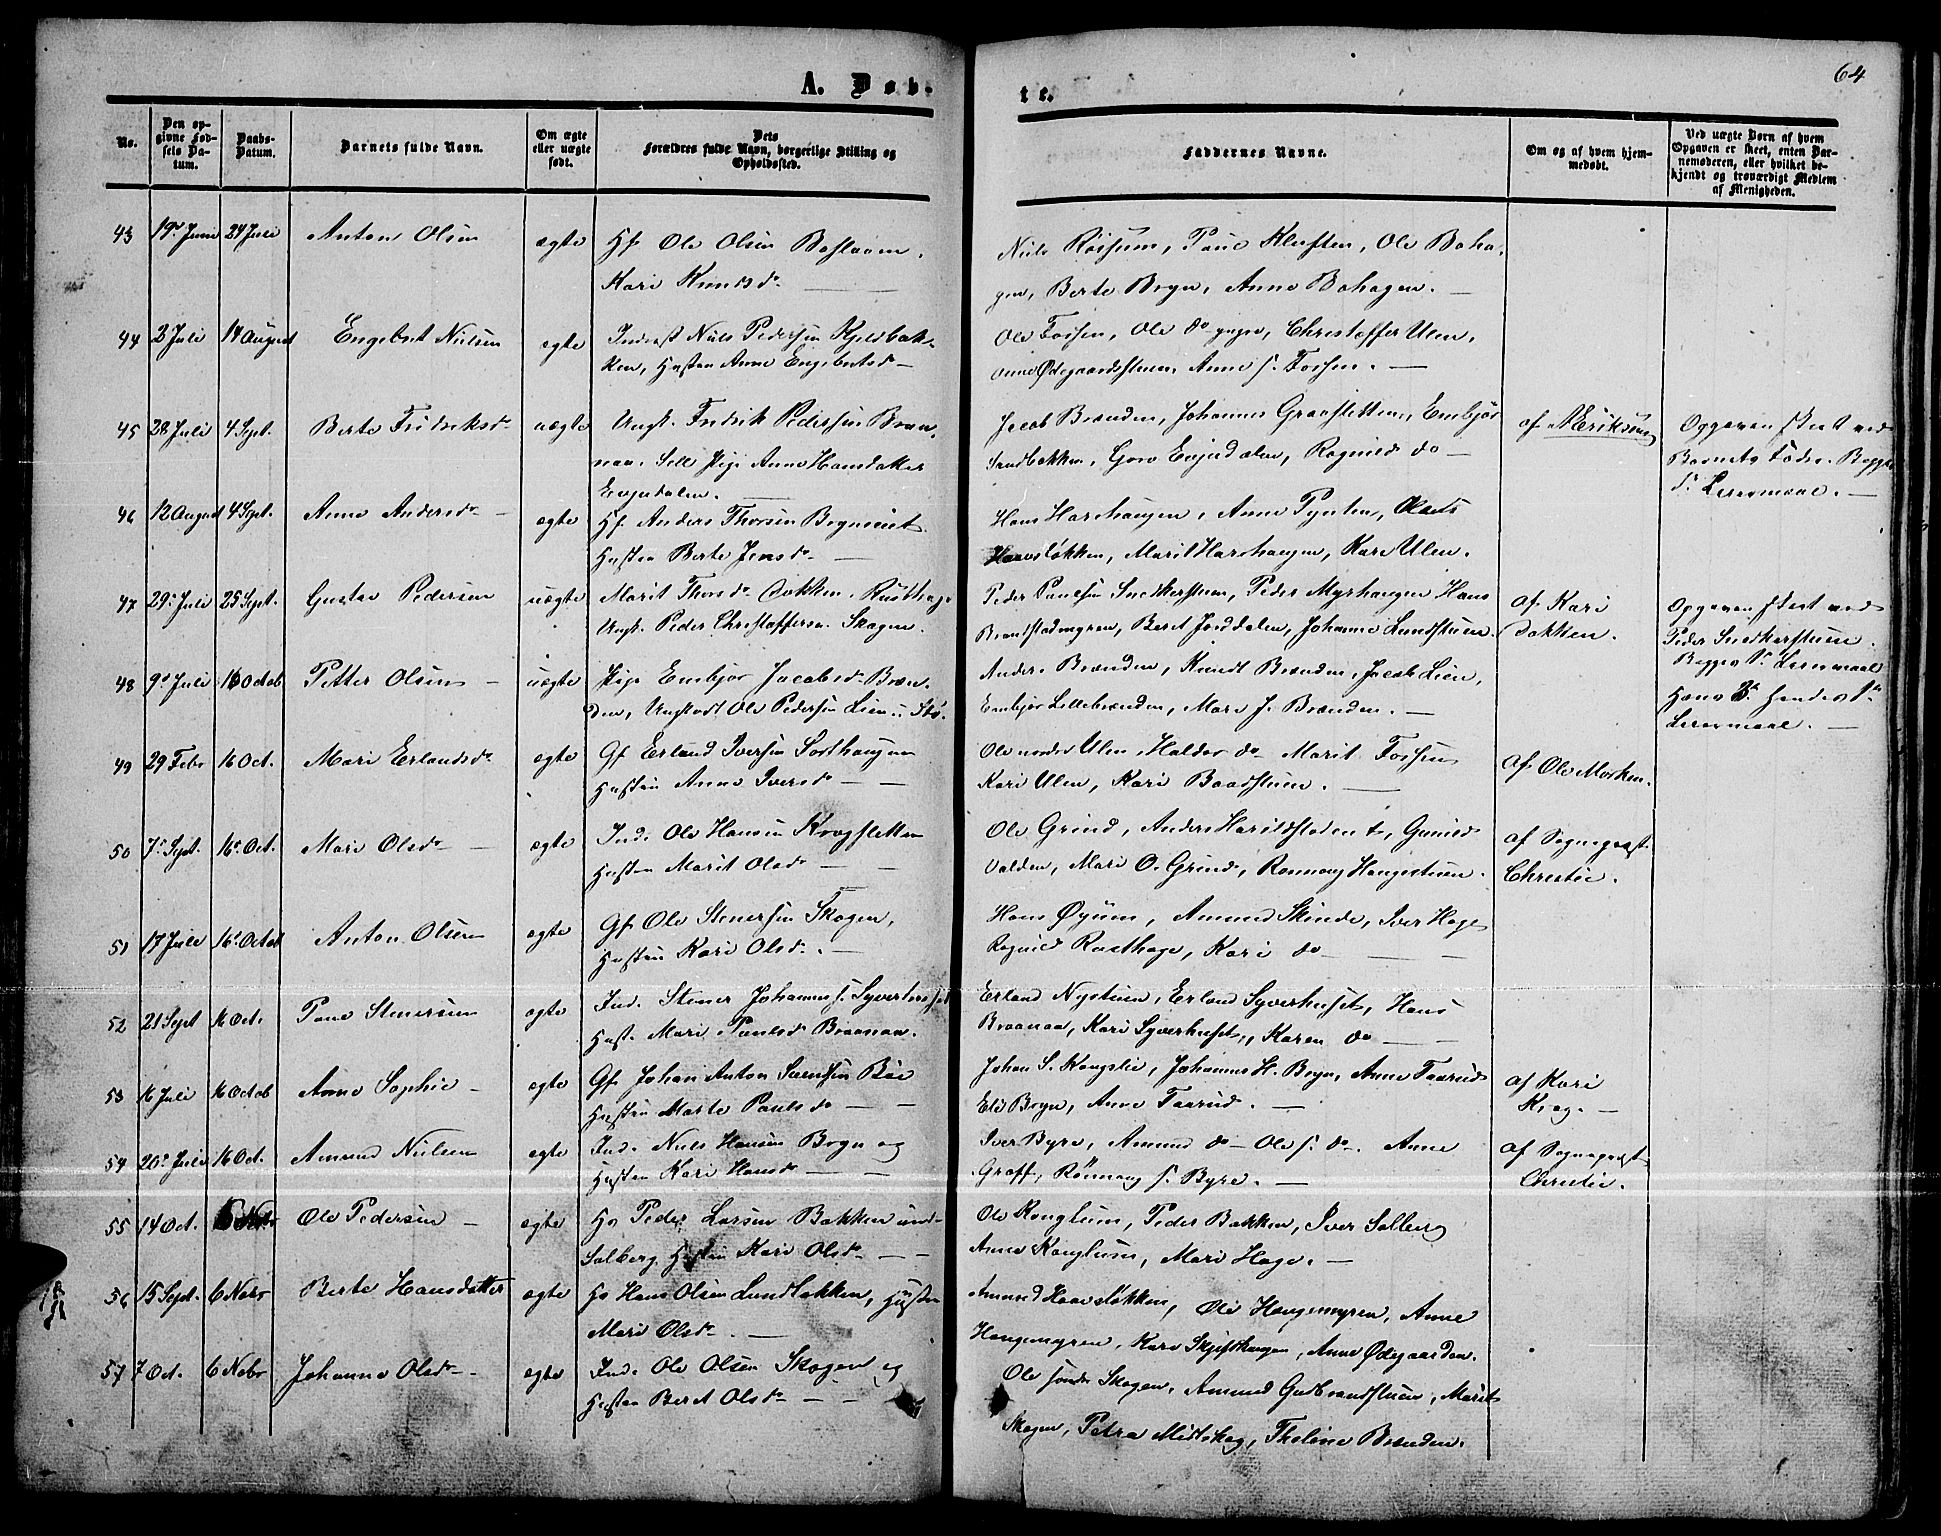 64
A. Døb-
te.
No.
Den op-
givne Fød-
sels Da-
tum.
Daabs-
Datum.
Barnets fulde Navn.
Om ægte
eller uægte
født.
Dets
Forældres fulde Navn, borgerlige Stilling og
Opholdssted.
Faddernes Navne.
Om og af hvem hjem-
medøbt.
Ved uægte Børn af hvem
Opgaven er skeet, enten Bar-
nemoderen, eller hvilket be-
kjendt og troværdigt Medlem
af Menigheden.
43 19. Juni 24 Juli Anton Olsen ægte Gf. Ole Olsen
Kari Knudsd.
Niels Røssum, Poul Kluften, Ole Baha-
gen, Berte Bryn, Anne Bahagen.
44 2 Juli 14 August Engebret Nielsen ægte Inderst Niels Pedersen Kjeldbak-
ken, Hustru Anne Engebretsd
Ole Fossen, Ole do yngre, Christoffer Ulen,
Anne Ødegaardsstuen, Anne s. Fossen.
45 28 Juli 4 Sept. Berte Fredriksd uægte Ungk. Fredrik Pedersen Braa-
naa. Pige Anne Hansdatter
Evjedalen.
Jacob Brænden, Johannes Graasletten, Embjør
Sandbakken, Goro Evjedalen, Ragnild do
af Eriksen
Opgaven skeet ved
Barnets Fader. Begges
1ste Leiermaal.
46 12 August 4 Sept. Anne Andersd ægte Hf. Anders Thorsen
Hustru Berte Jensd
Hans Harehaugen, Anne Pynten,
Haavsløkken, Marit Harehaugen, Kari Ulen.
47 29. Juli 25 Sept. Gustav Pedersen uægte Marit Thorsd. Dokken, Rusthage
Ungk. Peder Christoffersen Skogen.
Peder Poulsen Snekkerstuen, Peder Myrhaugen Hans
Brandstadmyren, Berit Jorddalen, Johanne Lundstuen.
af Kari
Dokken.
Opgaven skeet ved
Peder Snedkerstuen.
Begges 1. Leiermaal
48 9. Juli 16 Octob Petter Olsen uægte Pige Embjør Jacobsd. Bræn-
den, Ungkarl Ole Pedersen Lien
Anders Brænden, Knudt Brænden, Jacob Lien,
Embjør Lillebrænden, Mari J. Brænden.
Hans 3. Hendes 1ste
Leiermaal.
49 29 Febr 16 Oct. Mari Erlandsd ægte Gf. Erland Iversen Sorthaugen
Hustru Anne Iversd
Ole nordre Ulen, Haldor do Marit Fossen
Kari Ulen, Kari Baadstuen.
af Ole Morken.
50 7. Sept. 16. Oct. Mari Olsd ægte Ind. Ole Hansen Kragsletten
Hustru Marit Olsd
Ole Grind, Anders Harildstaden, Gunild
Valden, Mari O. Grind, Rønnaug Haugestuen.
af Sognepræst
Christie.
51 17 Juli 16. Octob Anton Olsen ægte Gf. Ole Stenersen Skogen,
Hustru Kari Olsd.
Hans Øyum, Amund Skinde, Iver Hage
Ragnild Rusthage, Kari do
52 21 Sept 16 Oct. Poul Stenersen ægte Ind. Stener Johannes s.
Hust. Mari Poulsd Braanaa.
Erland Nystuen, Erland Syverhuset, Hans
Braanaa, Kari Syverhuset, Karen do
53 16 Juli 16 Octob Anne Sophie ægte Gf. Johan Anton Bøe
Hustru Marte Poulsd
Johan S. Kongslie, Johannes H. Bryn, Anne Taarud
Eli Bryn, Anne Taarud.
af Kari
Krag.
54 20. Juli 16 Oct. Amund Nielsen ægte Ind. Niels Hansen Bryn og
Hustru Kari Hansd
Iver Byre, Amund do Ole s. do. Anne
Graff, Rønnaug s. Byre.
af Sognepræst
Christie.
55 14 Oct. 6 Nobr Ole Pedersen ægte Hs Peder Larsen Bakken und.
Solberg, Hustru Kari Olsd
Ole Konglum, Peder Bakken, Iver Solberg
Anne Konglum, Mari Hage.
56 15 Sept. 6 Nobr Berte Hansdatter ægte Hs Hans Olsen Lundløkken, Hustru
Mari Olsd.
Amund Haavsløkken, Ole Haugemyren, Anne
Haugemyren, Kari Skjefthaugen, Anne Ødegaarden.
57 7 Oct. 6 Nobr Johanne Olsd ægte Ind. Ole Olsen Skogen og
Hustru Berit Olsd
Ole søndre Skogen, Amund Gudbrandstuen, Marit
Skogen, Petra Midtskog, Theline Brænden.